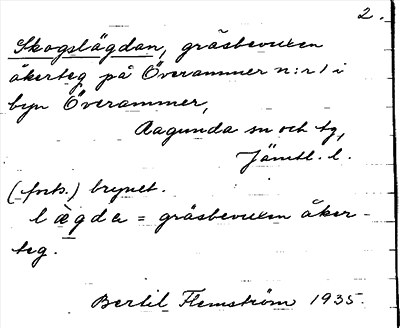 2.
Skogslägdan, gräsbevuxen
åkerteg på Överammer n:r 1 i
byn Överammer,
Ragunda sn och tg,
Jämtl. l.
(forts.) brynet.
lægda = gräsbevuxen åker-
teg.
Bertil Flemström 1935.